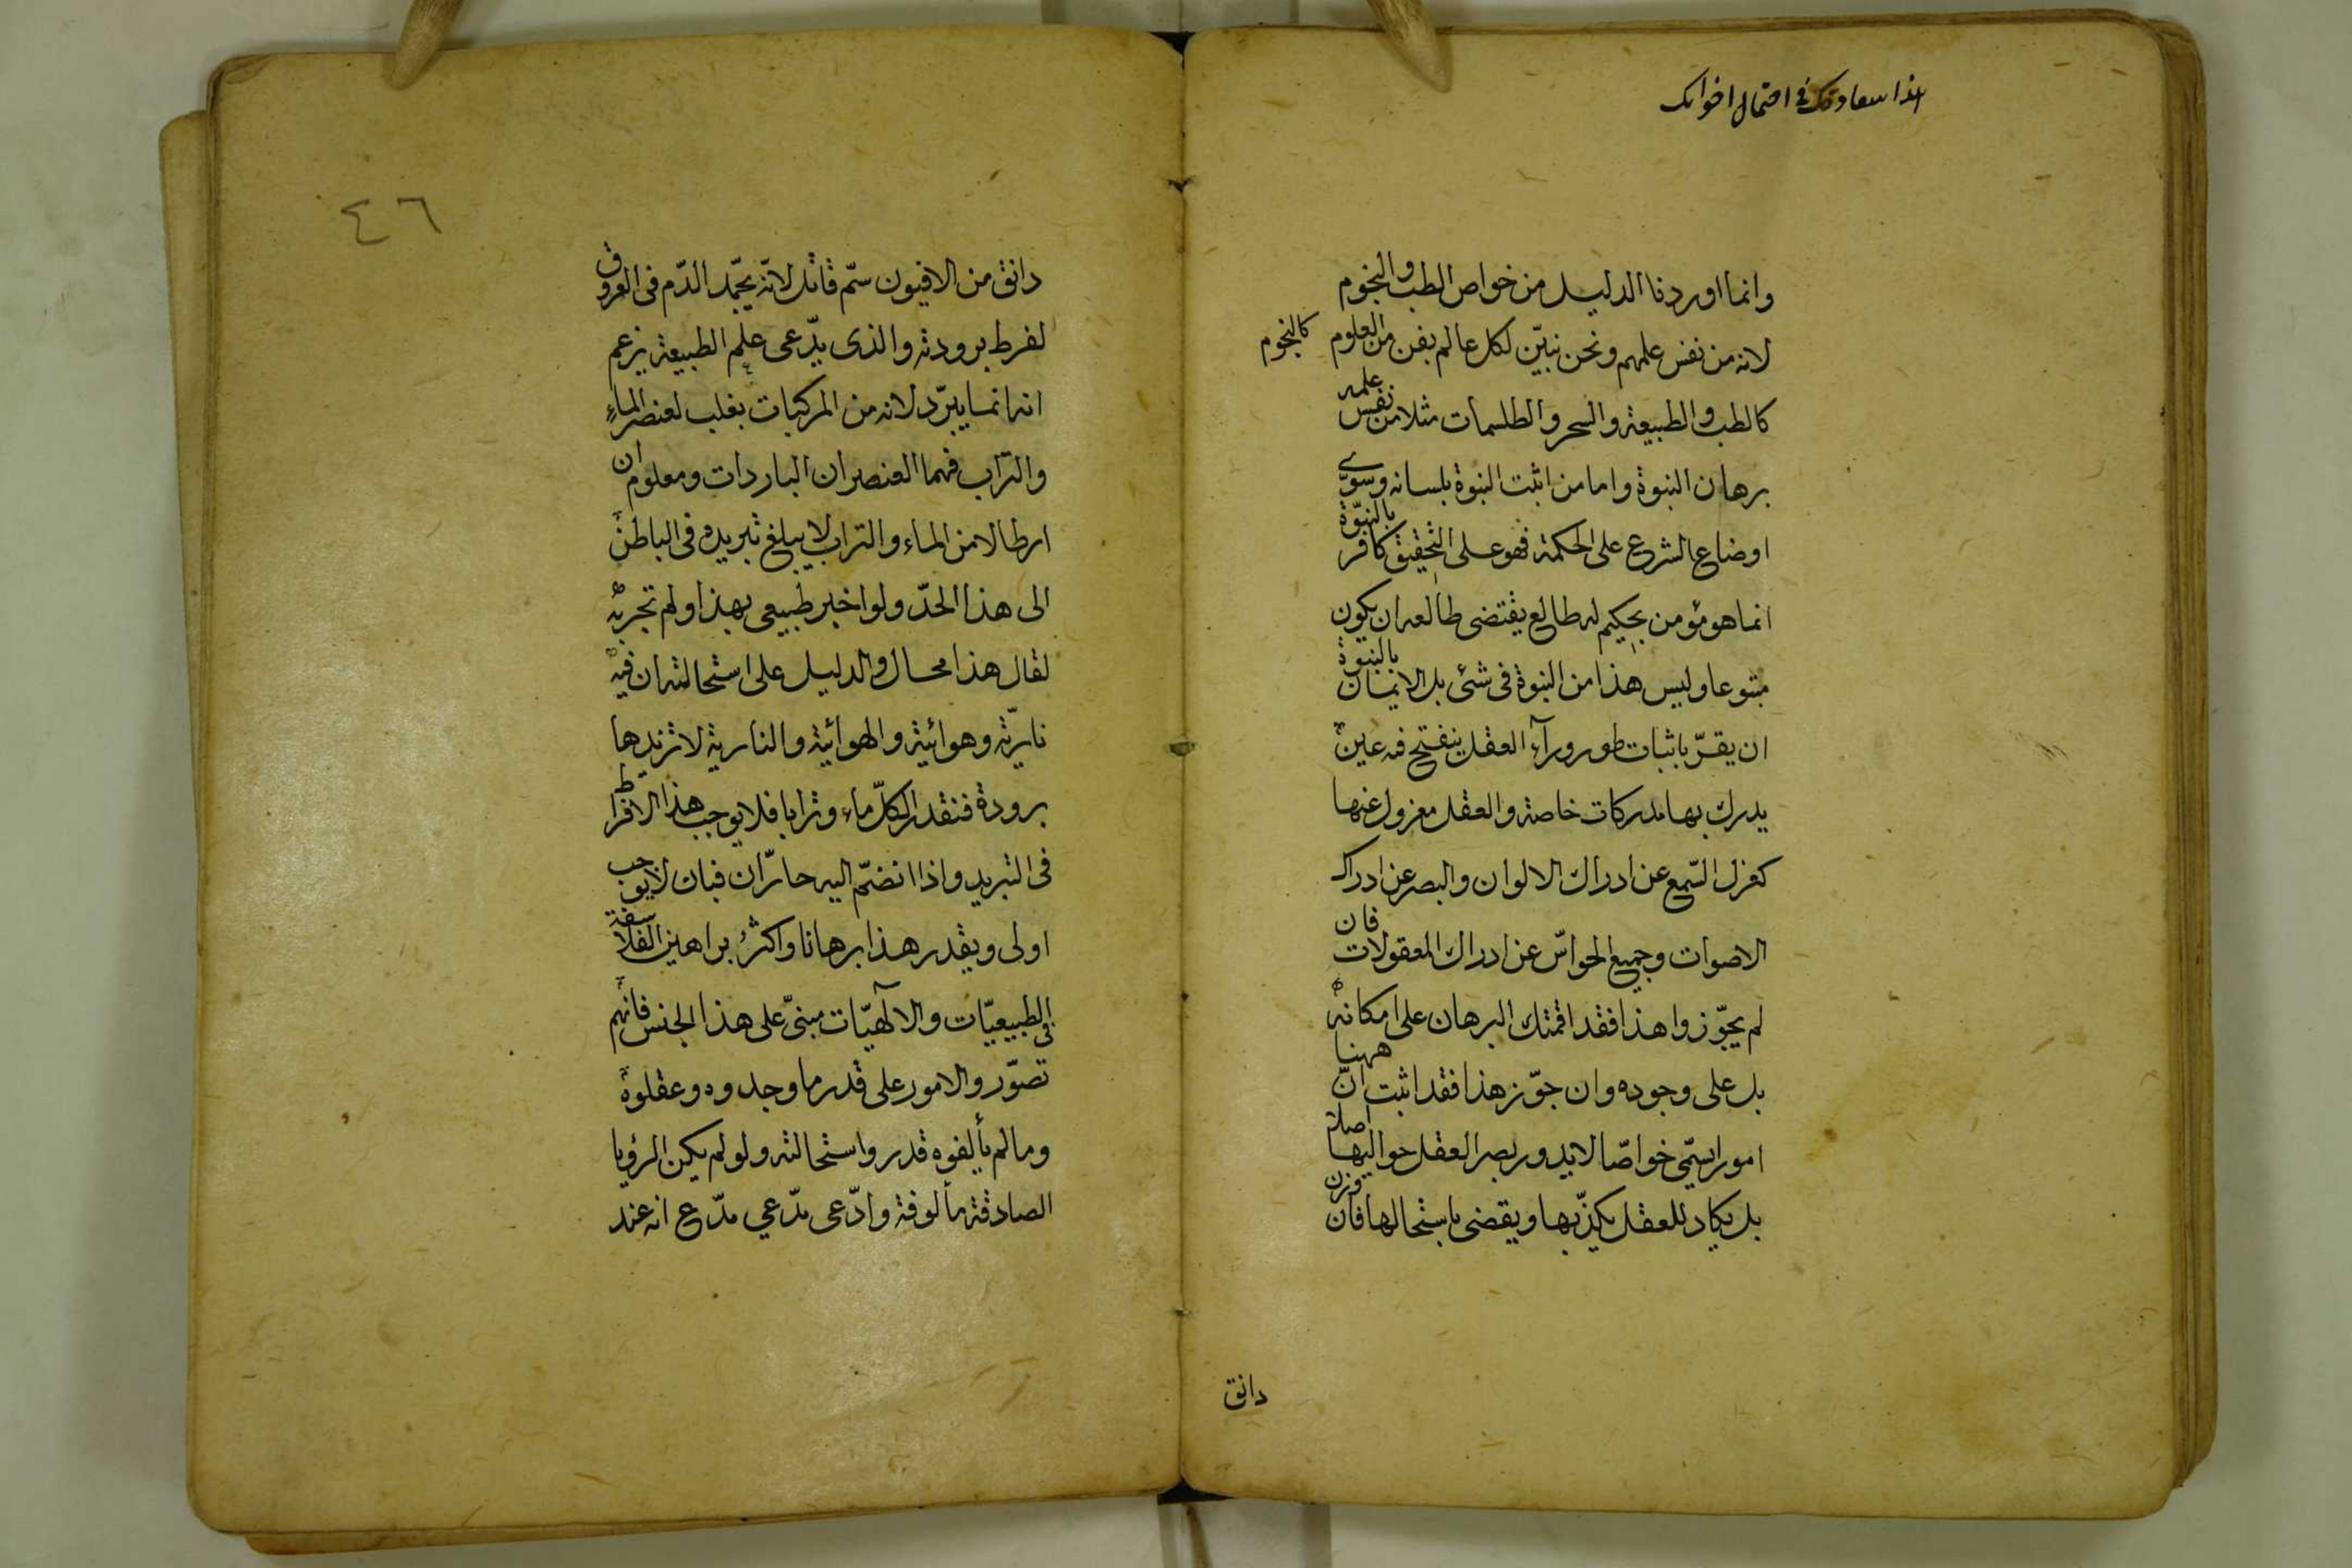 في احتمال اخوانك
وانما اوردنا الدليل من خواص الطب والنجوم
لانه من نفس علمهم ونحن نبيّن لكل عالم بفن من العلوم كالنجوم
كالطب والطبيعة والسحر والطلسمات مثلا من نفس علمه
برهان النبوة واما من اثبت النبوة بلسانه وسوّى
اوضاع الشرع على الحكمة فهو على التحقيق كافر بالنبوّة
انما هو مؤمن بحكيم له طالع يقتضى طالعه ان يكون
متبوعا وليس هذا من النبوة فى شئ بل الايمان بالنبوة
ان يقرّ باثبات طور ورآء العقل ينفتح فه عين
يدرك بها مدركات خاصة والعقل معزول عنها
كعزل السّمع عن ادراك الالوان والبصر عن ادراك
الاصوات وجميع الحواسّ عن ادراك المعقولات فان
لم يجوّزوا هذا فقد اقمتك البرهان على امكانه
بل على وجوده وان جوّز هذا فقد اثبت انّ ههنا
امورا سمّى خواصّا لايدور بصر العقل حواليها اصلا
بل يكاد للعقل يكذّبها ويقضى باستحالها فان وزن
دانق
٤٦
دانق من الافيون سمّ قاتل لانّه يجّمد الدّم فى العروق
لفرط برودته والذى يدّعى علم الطبيعة يزعم
انه انما يبرّد لانه من المركبات بغلب لعنصر الماءِ
والتراب فهما العنصران الباردات ومعلوم ان
ارطالا من الماء والتراب لا يبلغ تبريده فى الباطن
الى هذا الحدّ ولو اخبر طبيعى بهذا ولم تجربه
لقال هذا محال والدليل على استحالته ان فيه
ناريّة وهوائية والهوائية والنارية لا تزيدها
برودة فنقدر الكلّ ماء وترابا فلا يوجب هذا الافراط
فى التبريد واذا انضّم اليه حارّان فبان لا يوجب
اولى ويقدر هذا برهانا واكثرُ براهين الفلاسفة
فى الطبيعيّات والالٓهيّات مبنىّ على هذا الجنس فانهم
تصوّروالامور على قدر ما وجدوه وعقلوه
وما لم يألفوه قدروا استحالته ولو لم يكن الرؤيا
الصادقة مألوفة وادّعى مدّعي مدّع انه عند